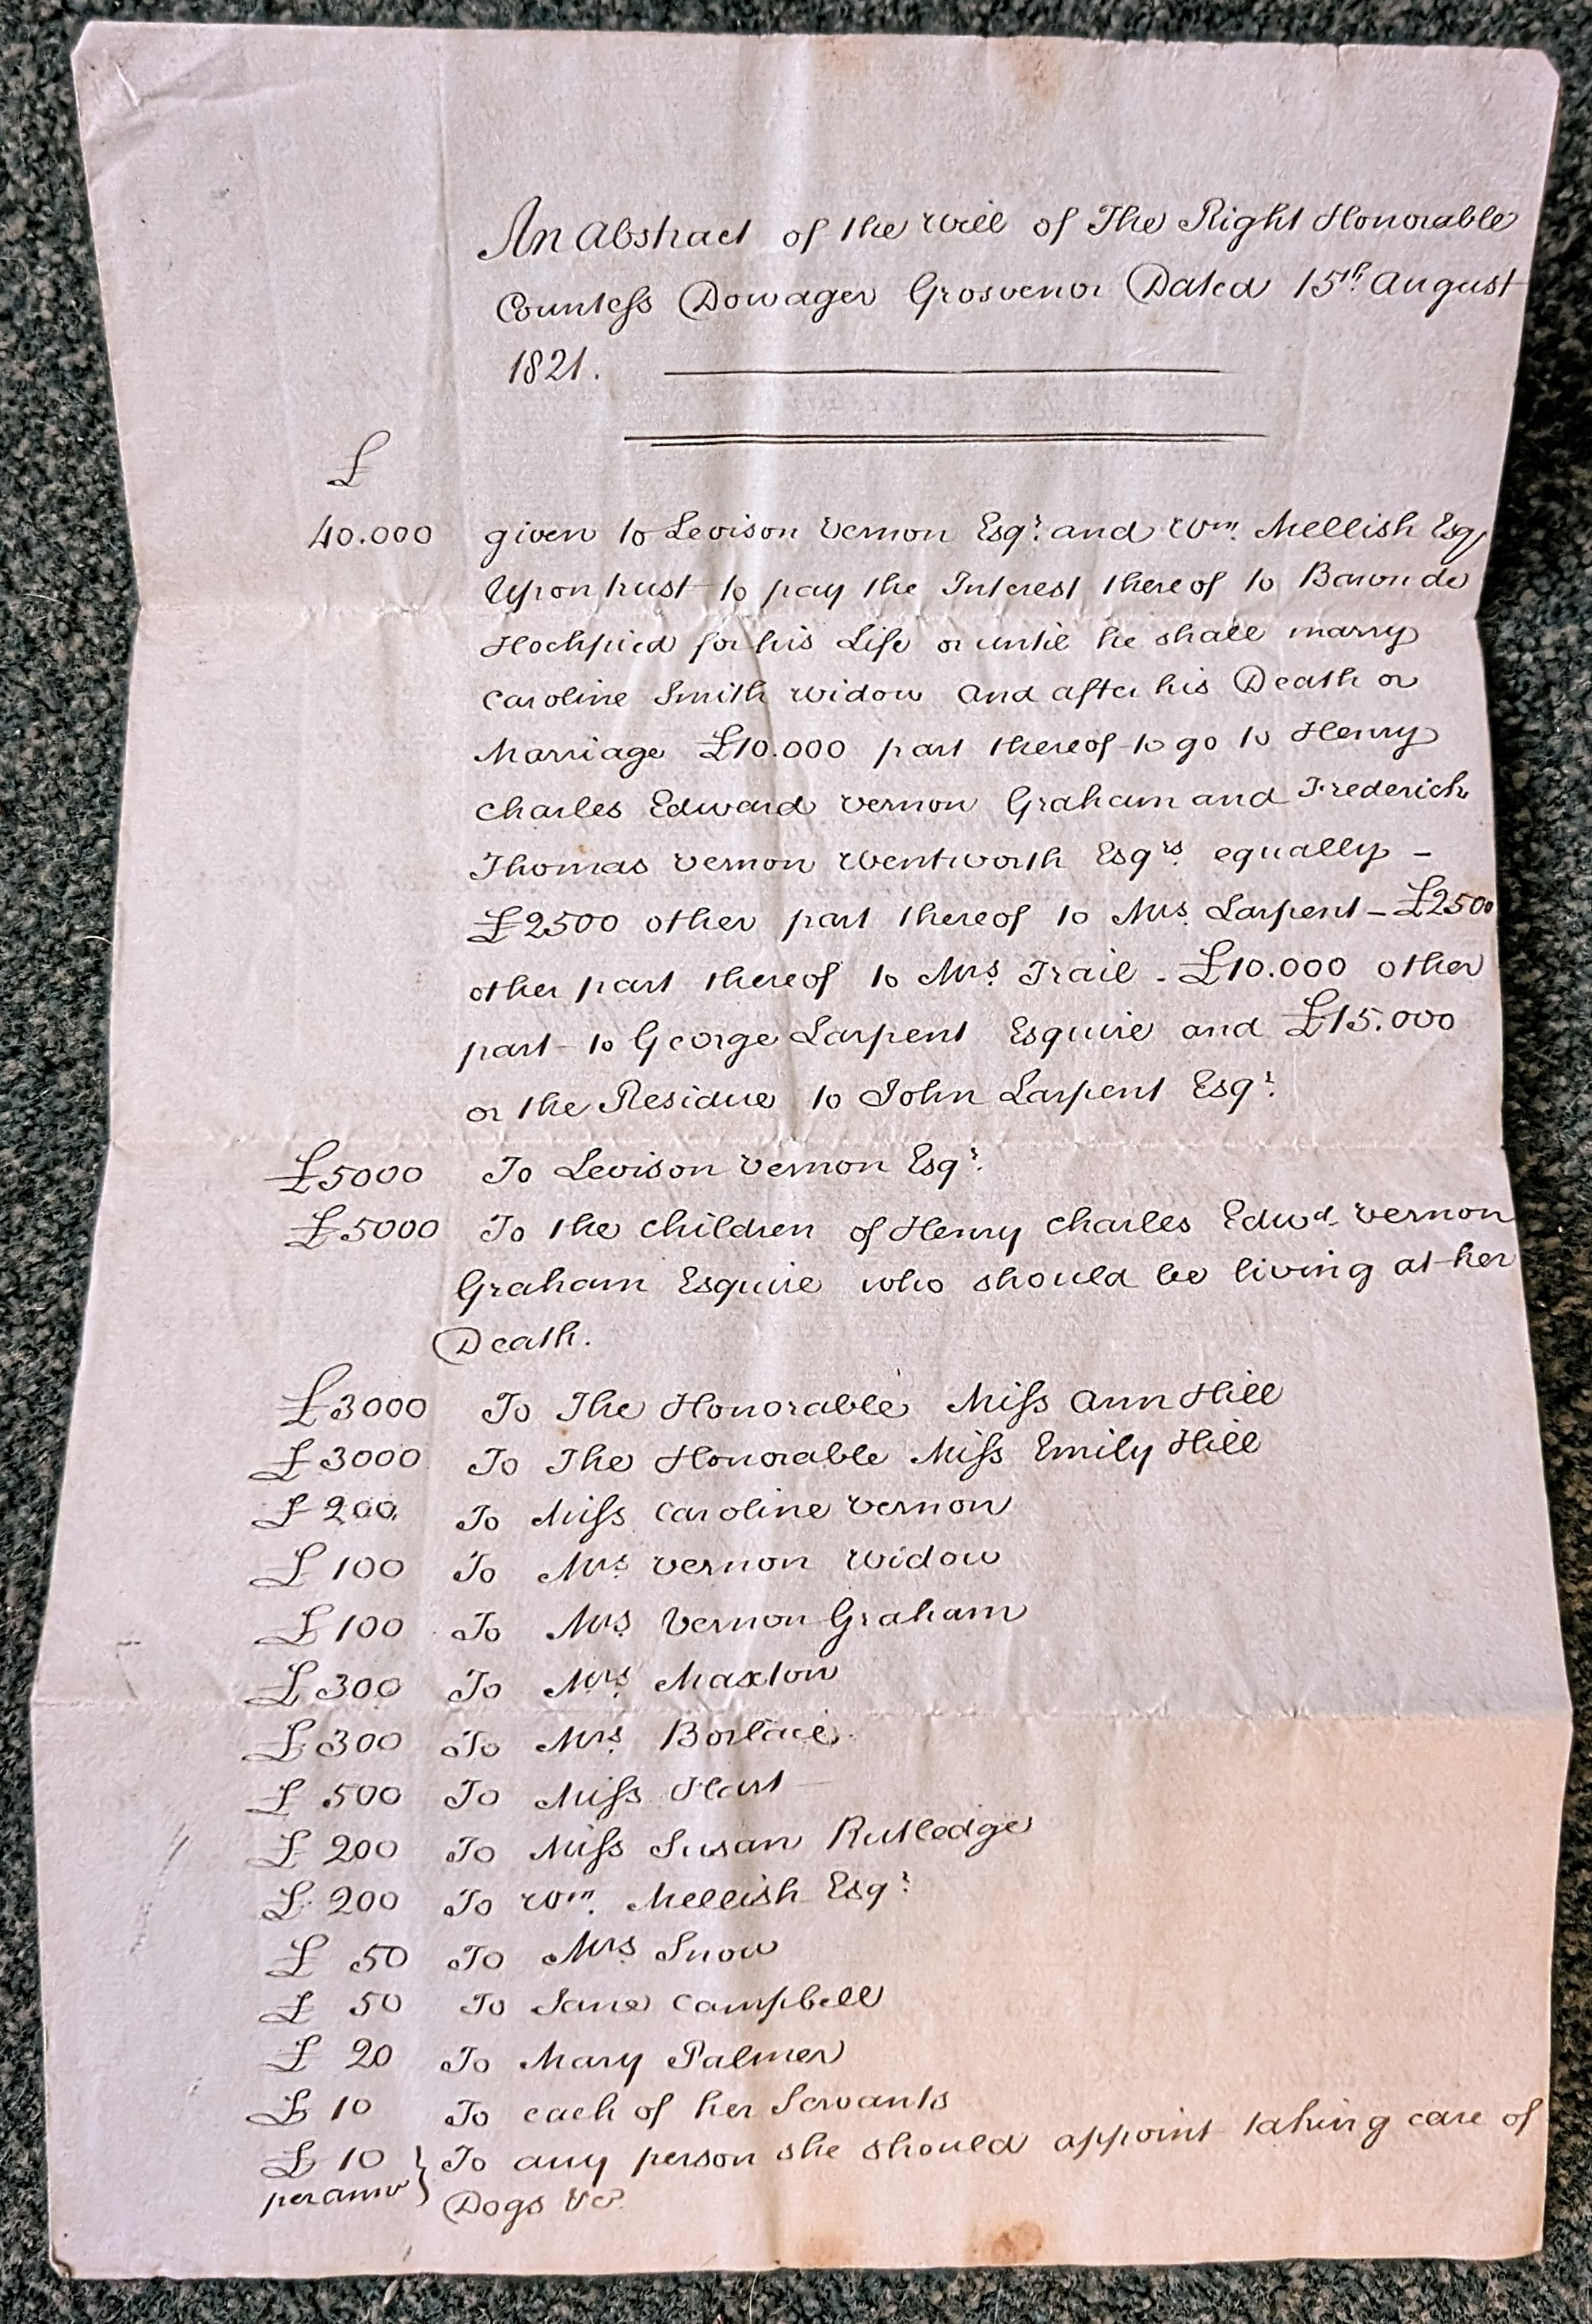 An Abstract of the Will of The Right Honorable
Countess Dowager Grosvenor Dated 15th. August
1821.
£
40.000 given to Levison Vernon Esqr. and Wm. Mellish Esq
Upon trust to pay the Interest thereof to Baron de
Hochpied for his Life or until he shall marry
Caroline Smith Widow and after his Death or
Marriage £10.000 part thereof to go to Henry
Charles Edward Vernon Graham and Frederick
Thomas Vernon Wentworth Esqrs. equally –
£2500 other part thereof to Mrs. Larpent – £2500
other part thereof to Mrs. Trail - £10.000 other
part to George Larpent Esquire and £15.000
or the Residue to John Larpent Esqr.
£5000 To Levison Vernon Esqr.
£5000 To the Children of Henry Charles Edwd. Vernon
Graham Esquire who should be living at her
Death.
£3000 To The Honorable Miss Ann Hill
£3000 To The Honorable Miss Emily Hill
£200 To Miss Caroline Vernon
£100 To Mrs. Vernon Widow
£100 To Mrs. Vernon Graham
£300 To Mrs. Maxton
£300 To Mrs. Borlace
£500 To Miss Hart
£200 To Miss Susan Rutledge
£200 To Wm. Mellish Esqr.
£50 To Mrs. Snow
£50 To Jane Campbell
£20 To Mary Palmer
£10 To each of her Servants
£10 } To any person she should appoint taking care of
per annm } Dogs &c.